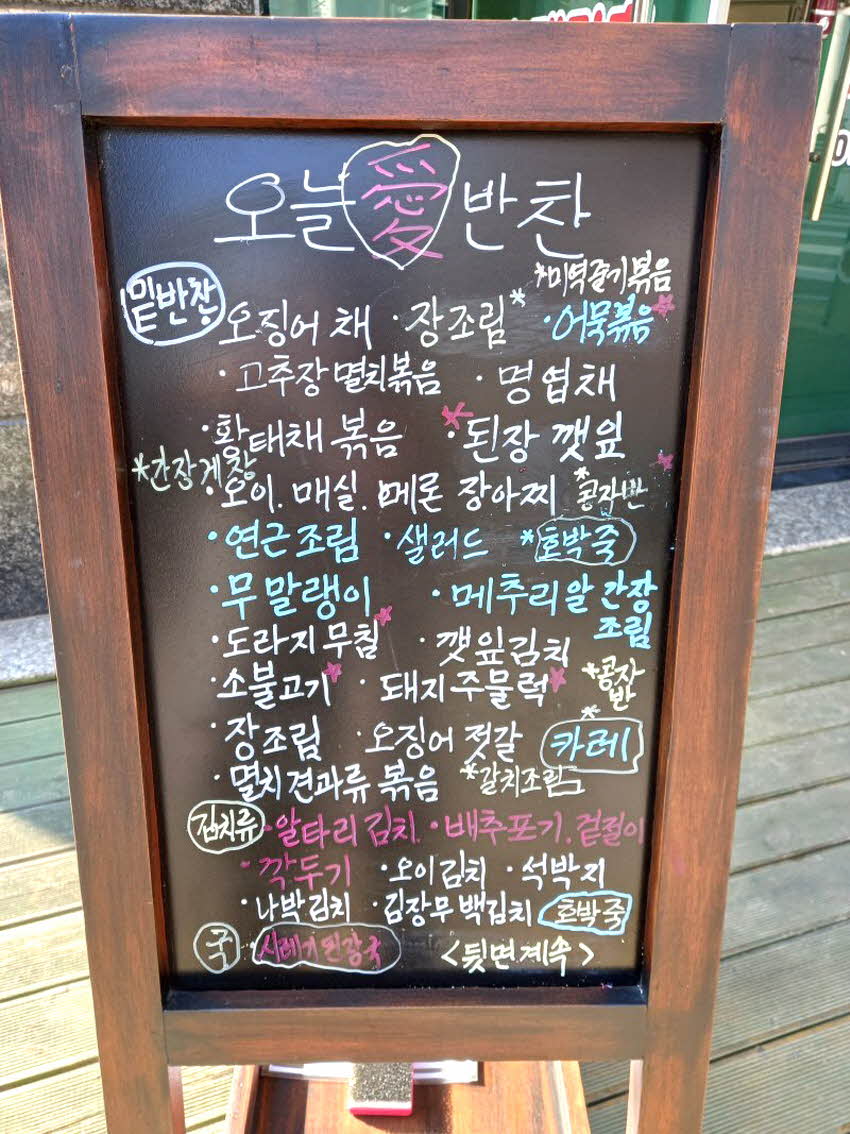 오늘 愛 반찬
*미역줄기볶음
밑반찬
오징어채 · 장조림* · 어묵볶음
· 고추장 멸치볶음 · 명엽채
· 황태채 볶음 · 된장 깻잎
*간장게장
오이. 매실. 메론 장아찌 *콩자반
· 연근조림 · 샐러드 *호박죽
· 무말랭이 · 메추리알 간장
조림
· 도라지무침 · 깻잎김치
· 소불고기 · 돼지주물럭 *콩자
반
· 장조림 · 오징어 젓갈 *카레
· 멸치견과류 볶음 *갈치조림
김치류 · 알타리김치. · 배추포기. 겉절이
· 깍두기 · 오이김치 · 석박지
· 나박김치 · 김장무백김치 호박죽
국 시레기된장국 <뒷면계속>